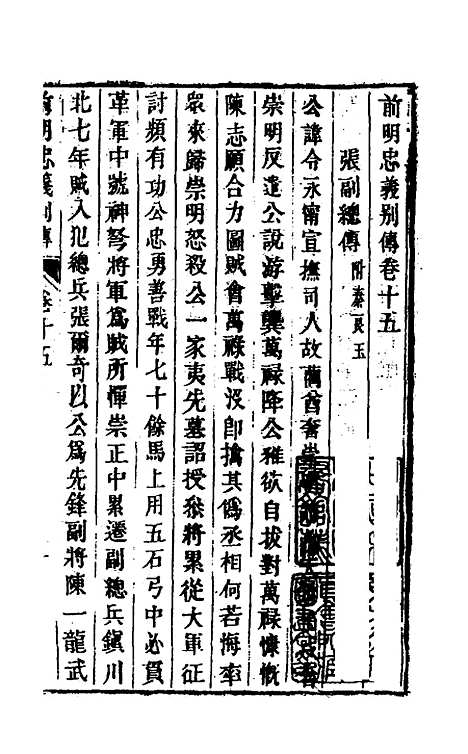 前明忠義别傳卷十五
張副總傳附秦良玉
公諱令永甯宣撫司人故藺酋奢崇
崇明反遣公說游擊龔萬祿降公雅欲自拔對萬祿慷慨
陳志願合力圖賊會萬祿戰沒即擒其偽丞相何若海率
眾來歸崇明怒殺公一家夷先墓詔授叅將累從大軍征
討頻有功公忠勇善戰年七十餘馬上用五石弓中必貫
革軍中號神弩將軍為賊所憚崇正中累遷副總兵鎮川
北七年賊入犯總兵張爾奇以公為先鋒副將陳一龍武
前明忠義别傳 卷十五 一